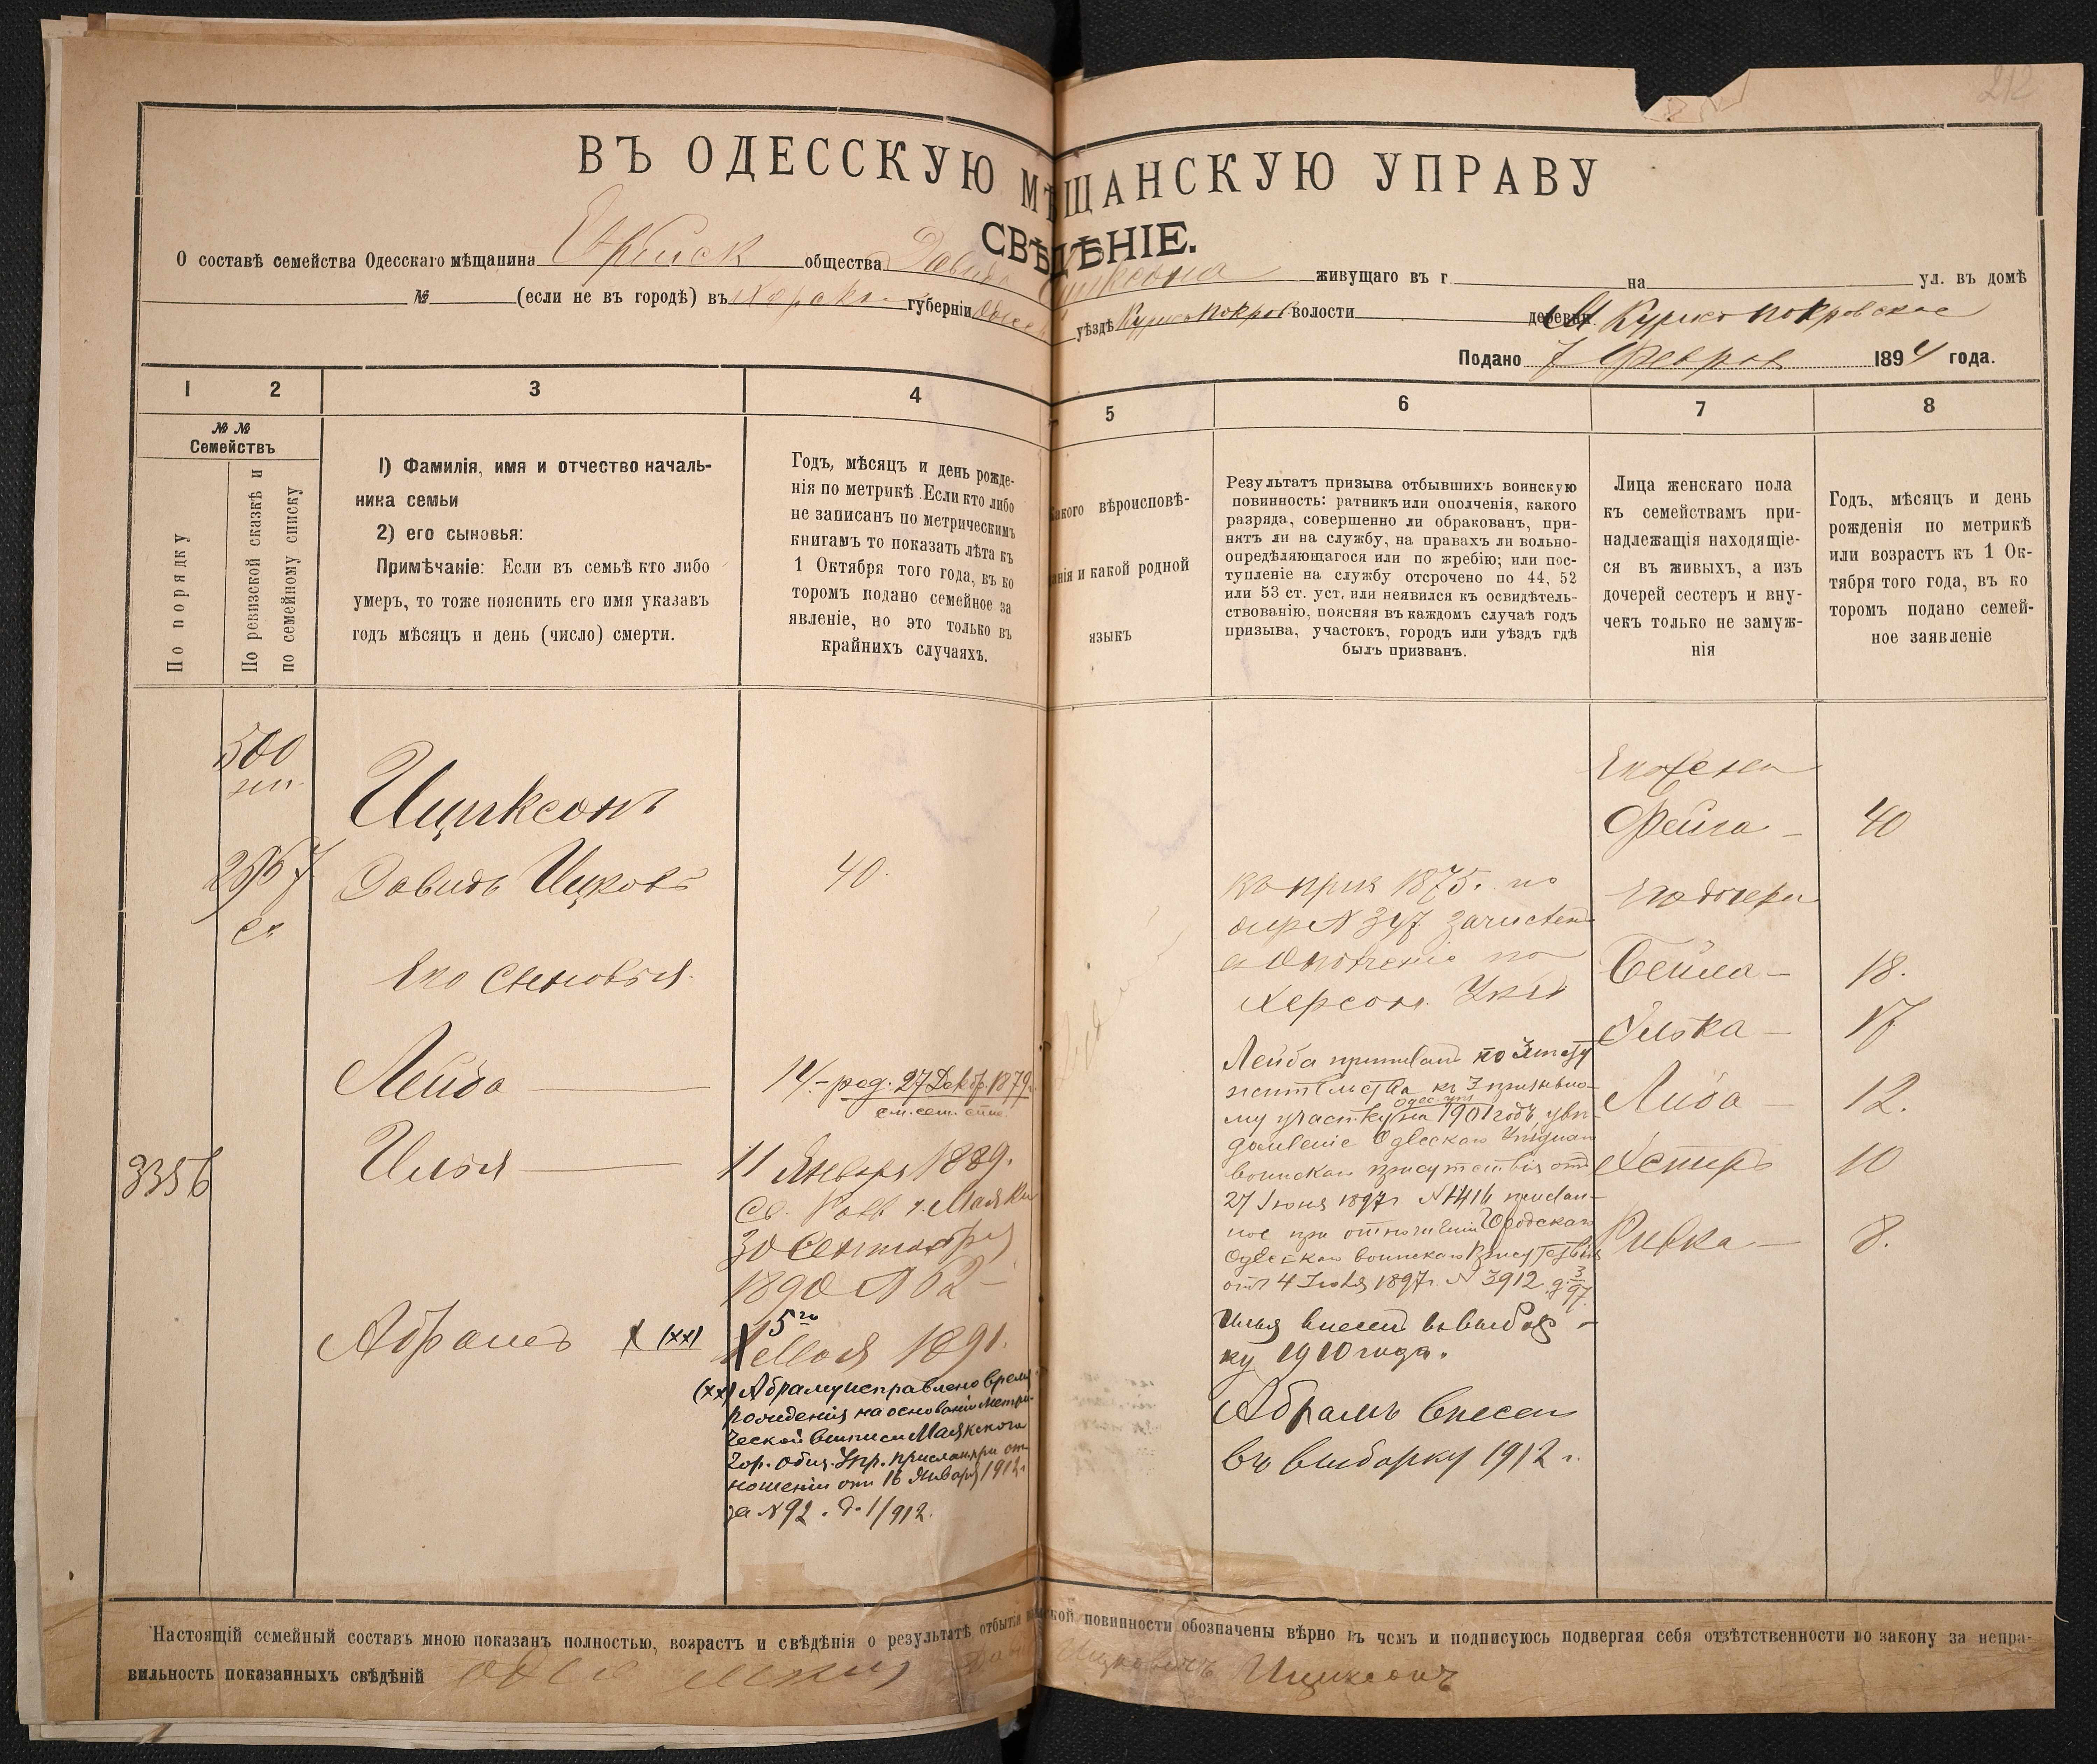 212
ВЪ ОДЕССКУЮ МѢЩАНСКУЮ УПРАВУ
СВѢДѢНІЕ.
О составѣ семейства Одесскаго мѣщанина Еврейск общества Давида Ициксона живущаго въ г. на ул. въ домѣ
№ (если не въ городѣ) въ Херсон. губерніи Одесс уѣздѣ Курисо Покров волости деревни М Курисо Покровское
Подано 7 Феврал 1894 года.
1 2 3 4 5 6 7 8
№ № Семействъ
По порядку
По ревизской сказкѣ и
по семейному списку
1) Фамилія, имя и отчество началь-
ника семьи
2) его сыновья:
Примѣчаніе: Если въ семьѣ кто либо
умеръ, то тоже пояснить его имя указавъ
годъ мѣсяцъ и день (число) смерти.
Годъ, мѣсяцъ и день рожде-
нія по метрикѣ. Если кто либо
не записанъ по метрическимъ
книгамъ то показать лѣта къ
1 Октября того года, въ ко
торомъ подано семейное за
явленіе, но это только въ
крайнихъ случаяхъ.
Какого вѣроисповѣ-
данія и какой родной
языкъ
Результатъ призыва отбывшихъ воинскую
повинность: ратникъ или ополченія, какого
разряда, совершенно ли обракованъ, при-
нятъ ли на службу, на правахъ ли вольно-
опредѣляющагося или по жребію; или пос-
тупленіе на службу отсрочено по 44, 52
или 53 ст. уст. или неявился къ освидѣтель-
ствованію, поясняя въ каждомъ случаѣ годъ
призыва, участокъ, городъ или уѣздъ гдѣ
былъ призванъ.
Лица женскаго пола
къ семействамъ при-
надлежащія находящіе-
ся въ живыхъ, а изъ
дочерей сестеръ и вну-
чекъ только не замуж-
нія
Годъ, мѣсяцъ и день
рожденія по метрикѣ
или возрастъ къ 1 Ок-
тября того года, въ ко
торомъ подано семей-
ное заявленіе
500
Ициксонъ
Давидъ Ицковъ 40.
Его сыновья.
Лейба 14 – род. 27 Декб. 1879 г.
см. сем. спис.
3356 Илья 11 Января 1889.
Св. Равв г. Маяки
30 Сентября
1890 № 62 –
Абрамъ (хх)
15го Мая 1891.
(хх) Абраму исправлено время
рожденія на основаніи метри-
ческой выписи Маякскаго
Гор. Общ. Упр. прислан. при от-
ношеніи отъ 16 Января 1912 г.
за № 92. д. 1/912.
въ приз 1875. по
жер № 347 зачислен
въ ополченіе по
Херсон. Уѣзд
Лейба приписанъ по мѣсту
жительства къ 3 призывно-
му участку Одес. уѣз. на 1901 годъ, уви-
домленіе Одесскаго Уѣзднаго
воинскаго присутствія отъ
27 Іюня 1897 г. № 1416 прислан-
ное при отношеніи Городскаго
Одесскаго воинскаго присутствія
отъ 4 Іюля 1897 г. № 3912 д. 3/97.
Илья внесенъ въ выбор-
ку 1910 года.
Абрамъ внесенъ
въ выборку 1912 г.
Его жена
Фейга – 40
Его дочери
Бейла – 18.
– 17
Либа – 12.
Хетиръ 10
Ривка – 8.
Настоящій семейный составъ мною показанъ полностью, возрастъ и свѣдѣнія о результатѣ отбытія воинской повинности обозначены вѣрно въ чемъ и подписуюсь подвергая себя отвѣтственности по закону за непра-
вильность показанныхъ свѣдѣній Ицковичъ Ициксонъ